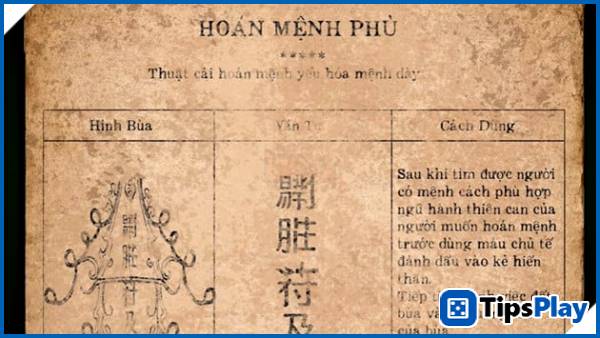 HOÁN MỆNH PHÙ
*****
Thuật cải hoán mệnh yếu hóa mệnh dày
Hình Bùa
Văn Tự
Cách Dùng
Sau khi tìm được người
có mệnh cách phù hợp
ngũ hành thiên can của
người muốn hoán mệnh
trước dùng máu chủ tế
đánh dấu vào kẻ hiến
thân.
Tiếp
việc đốt
bùa
của bùa
胜
符
及
TipsPlay